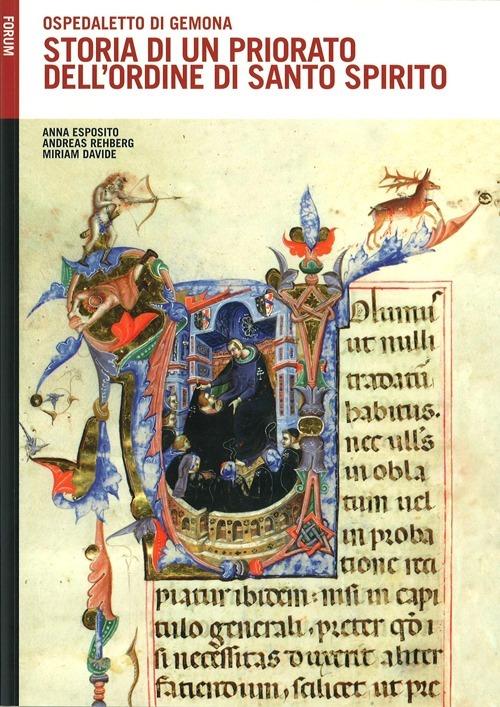 FORUM
OSPEDALETTO DI GEMONA
STORIA DI UN PRIORATO
DELL'ORDINE DI SANTO SPIRITO
ANNA ESPOSITO
ANDREAS REHBERG
MIRIAM DAVIDE
olumus
ut nulli
tradatū
habitus.
nec ull's
in obla
tum uel
in proba
tione reci
piatur ibidem: nisi in capi
tulo generali, preter qđ i
si necessitas duxerit aliter
fatiendum, scilicet ut pre